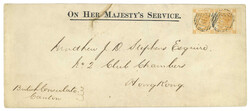 ON HER MAJESTY'S SERVICE.
J. R. Stephens Esquire
No 2 Club Chambers
HongKong
British Consulate
Canton